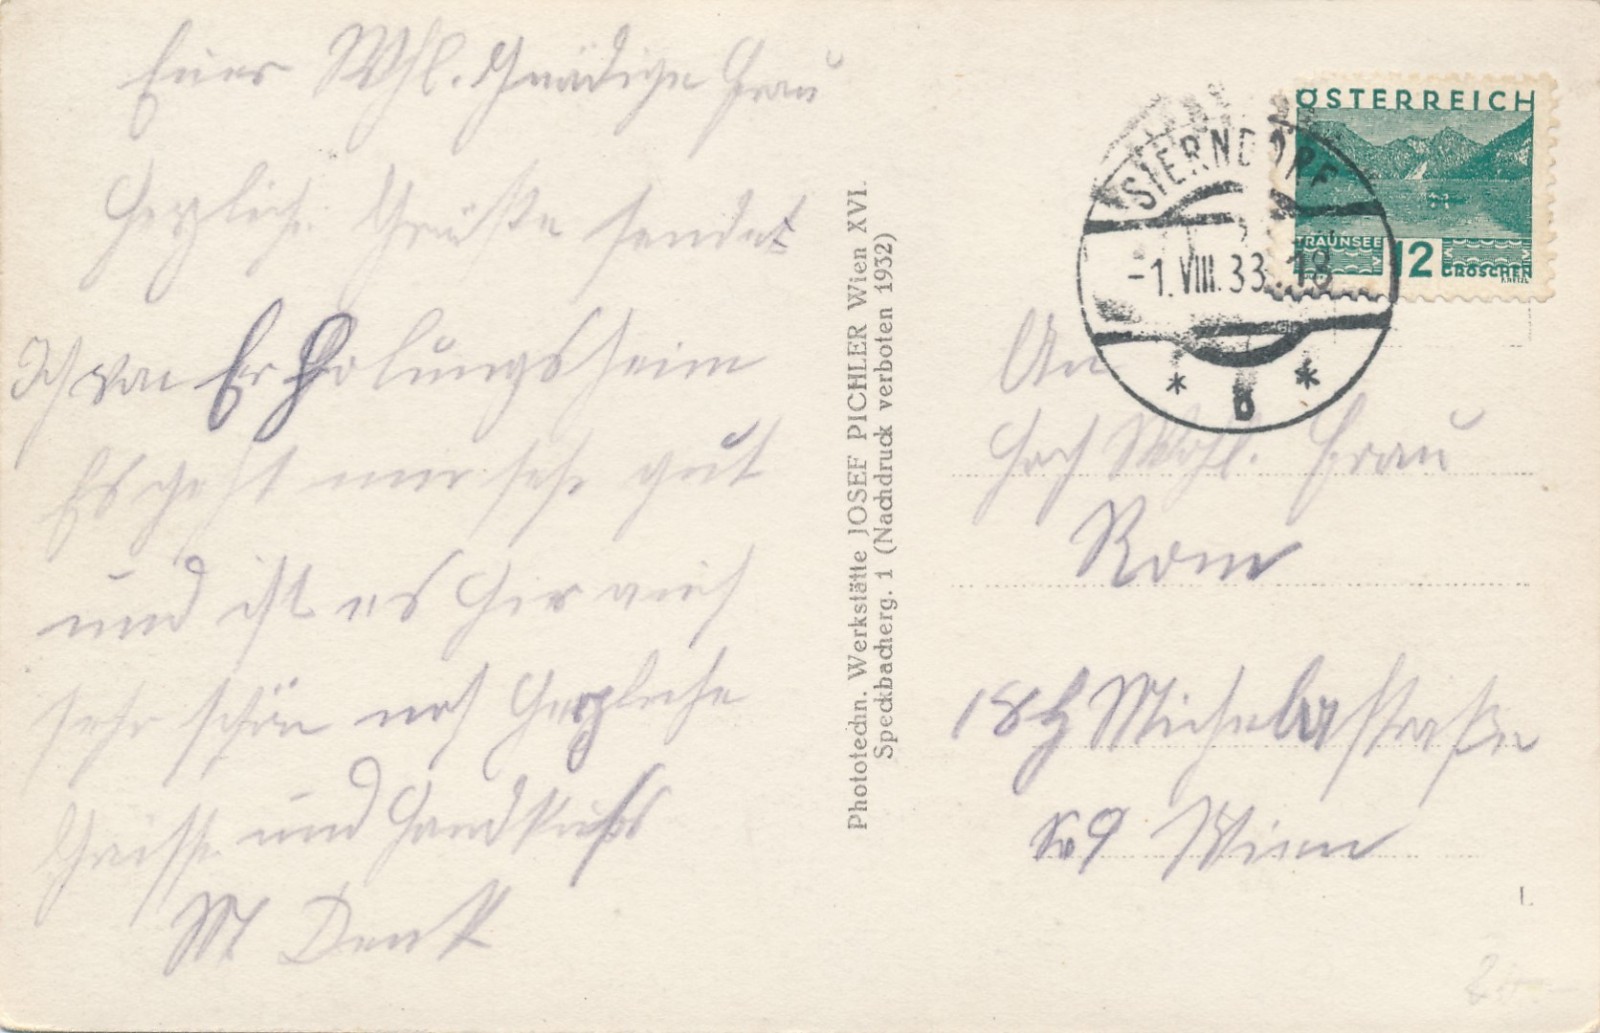 Euer Whl. Gnädige Frau
Herzliche Grüße sendet
Ich von Erholungsheim
Es geht mir sehr gut
und ist es hier auch
sehr schön noch Herzliche
Grüsse und Handkuß
M Denk
Phototechn. Werkstätte JOSEF PICHLER Wien XVI.
Speckbacherg. 1 (Nachdruck verboten 1932)
ÖSTERREICH
TRAUNSEE
12
GROSCHEN
SIERNDORF
-1.VIII.33.18
* b *
An
Hoch Wohl. Frau
Rom
18 Michaelerstraße
9 Wien
1.